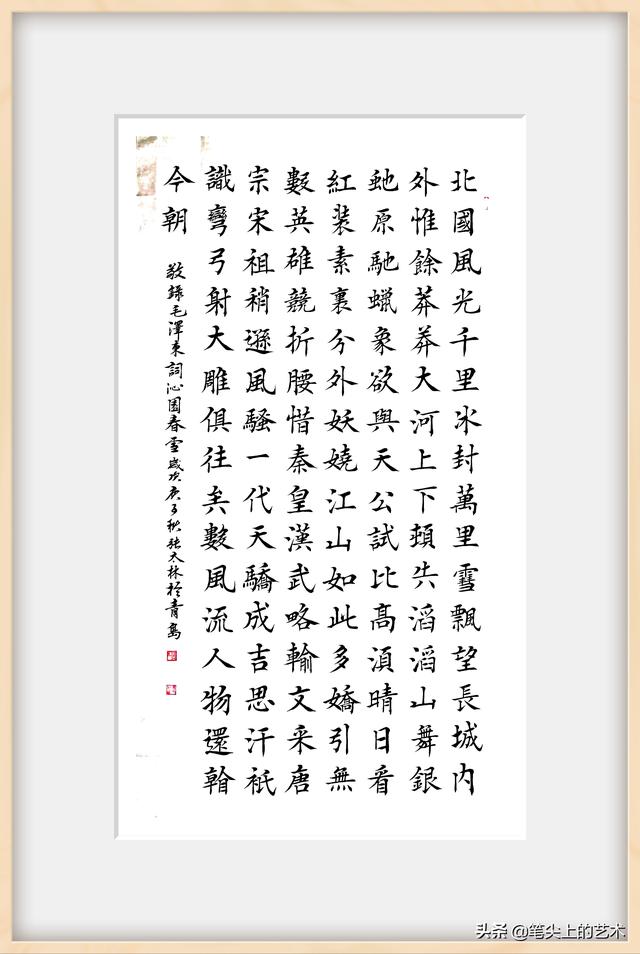 北國風光千里冰封萬里雪飄望長城内
外惟餘莽莽大河上下頓失滔滔山舞銀
虵原馳蠟象欲與天公試比高湏晴日看
紅装素裹分外妖嬈江山如此多嬌引無
數英雄競折腰惜秦皇漢武略輸文采唐
宗宋祖稍遜風騷一代天驕成吉思汗衹
識彎弓射大雕俱往矣數風流人物還看
今朝
敬錄毛澤東詞沁園春雪歲次庚子秋張林於青島
头条 @笔尖上的艺术